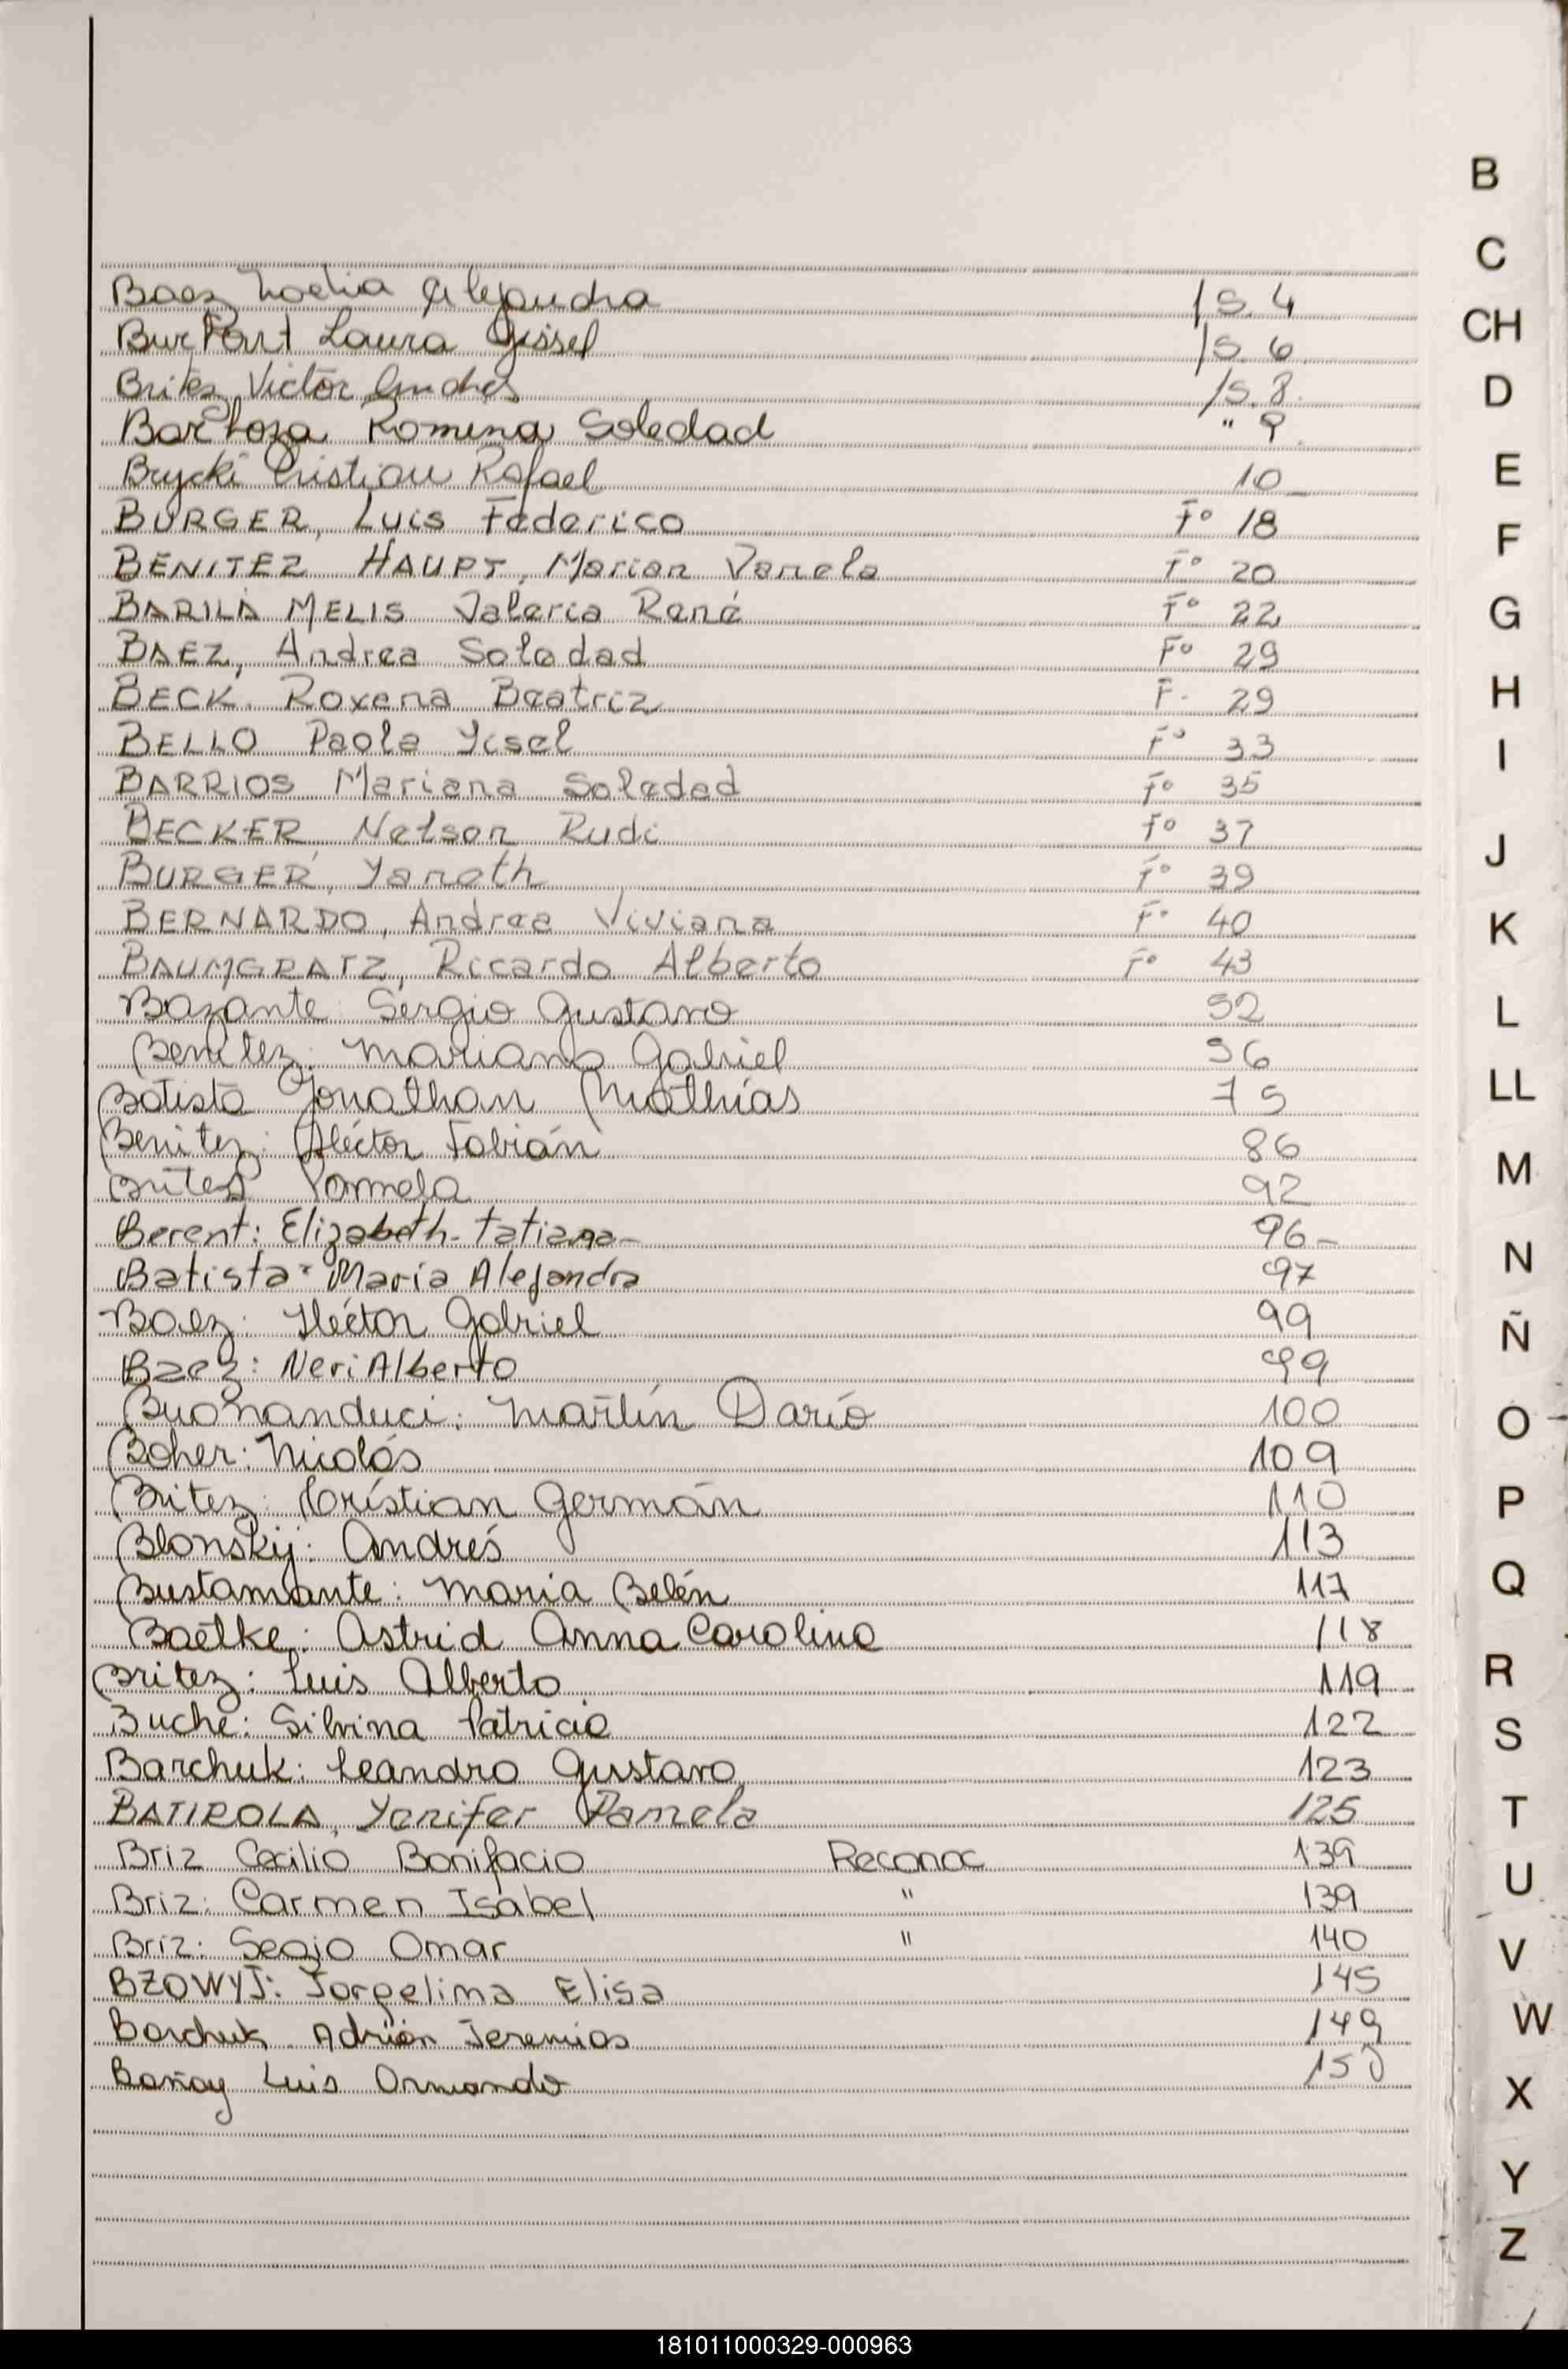 Baez Noelia Alejandra /S. 4
Burkart Laura Gissel /S. 6
Britez Victor Andres /S. 8.
Barboza Romina Soledad " 9.
Brycki Cristian Rafael 10
BURGER, Luis Federico Fº 18
BENITEZ HAUPT, Marian Vanela Fº 20
BARILÁ MELIS Valeria René Fº 22
BAEZ, Andrea Soledad Fº 29
BECK. Roxena Beatriz F. 29
BELLO Paola Yisel Fº 33
BARRIOS Mariana Soledad Fº 35
BECKER Nelson Rudi Fº 37
BURGER, Yaneth Fº 39
BERNARDO, Andrea Viviana Fº 40
BAUMGRATZ, Ricardo Alberto Fº 43
Bazante: Sergio Gustavo 52
Benítez: Mariano Gabriel 56
Batista Jonathan Mathías 75
Benitez: Héctor Fabián 86
Brites Pamela 92
Berent: Elizabeth-tatiana- 96-
Batista: María Alejandra 97
Baez: Héctor Gabriel 99
Baez: Neri Alberto 99
Buonanduci: Martín Darío 100
Boher: Nicolás 109
Britez: Cristian Germán 110
Blonskij: Andrés 113
Bustamante: Maria Belén 117
Baetke: Astrid Anna Carolina 118
Britez: Luis Alberto 119
Buche: Silvina Patricia 122
Barchuk: Leandro Gustavo 123
BATIROLA, Yenifer Pamela 125
Briz Cecilio Bonifacio Reconoc 139
Briz: Carmen Isabel " 139
Briz: Segio Omar " 140
BZOWYJ: Jorgelina Elisa 145
Barchuk Adrián Jeremias 149
Bañay Luis Armando 150
B
C
CH
D
E
F
G
H
I
J
K
L
LL
M
N
Ñ
O
P
Q
R
S
T
U
V
W
X
Y
Z
181011000329-000963